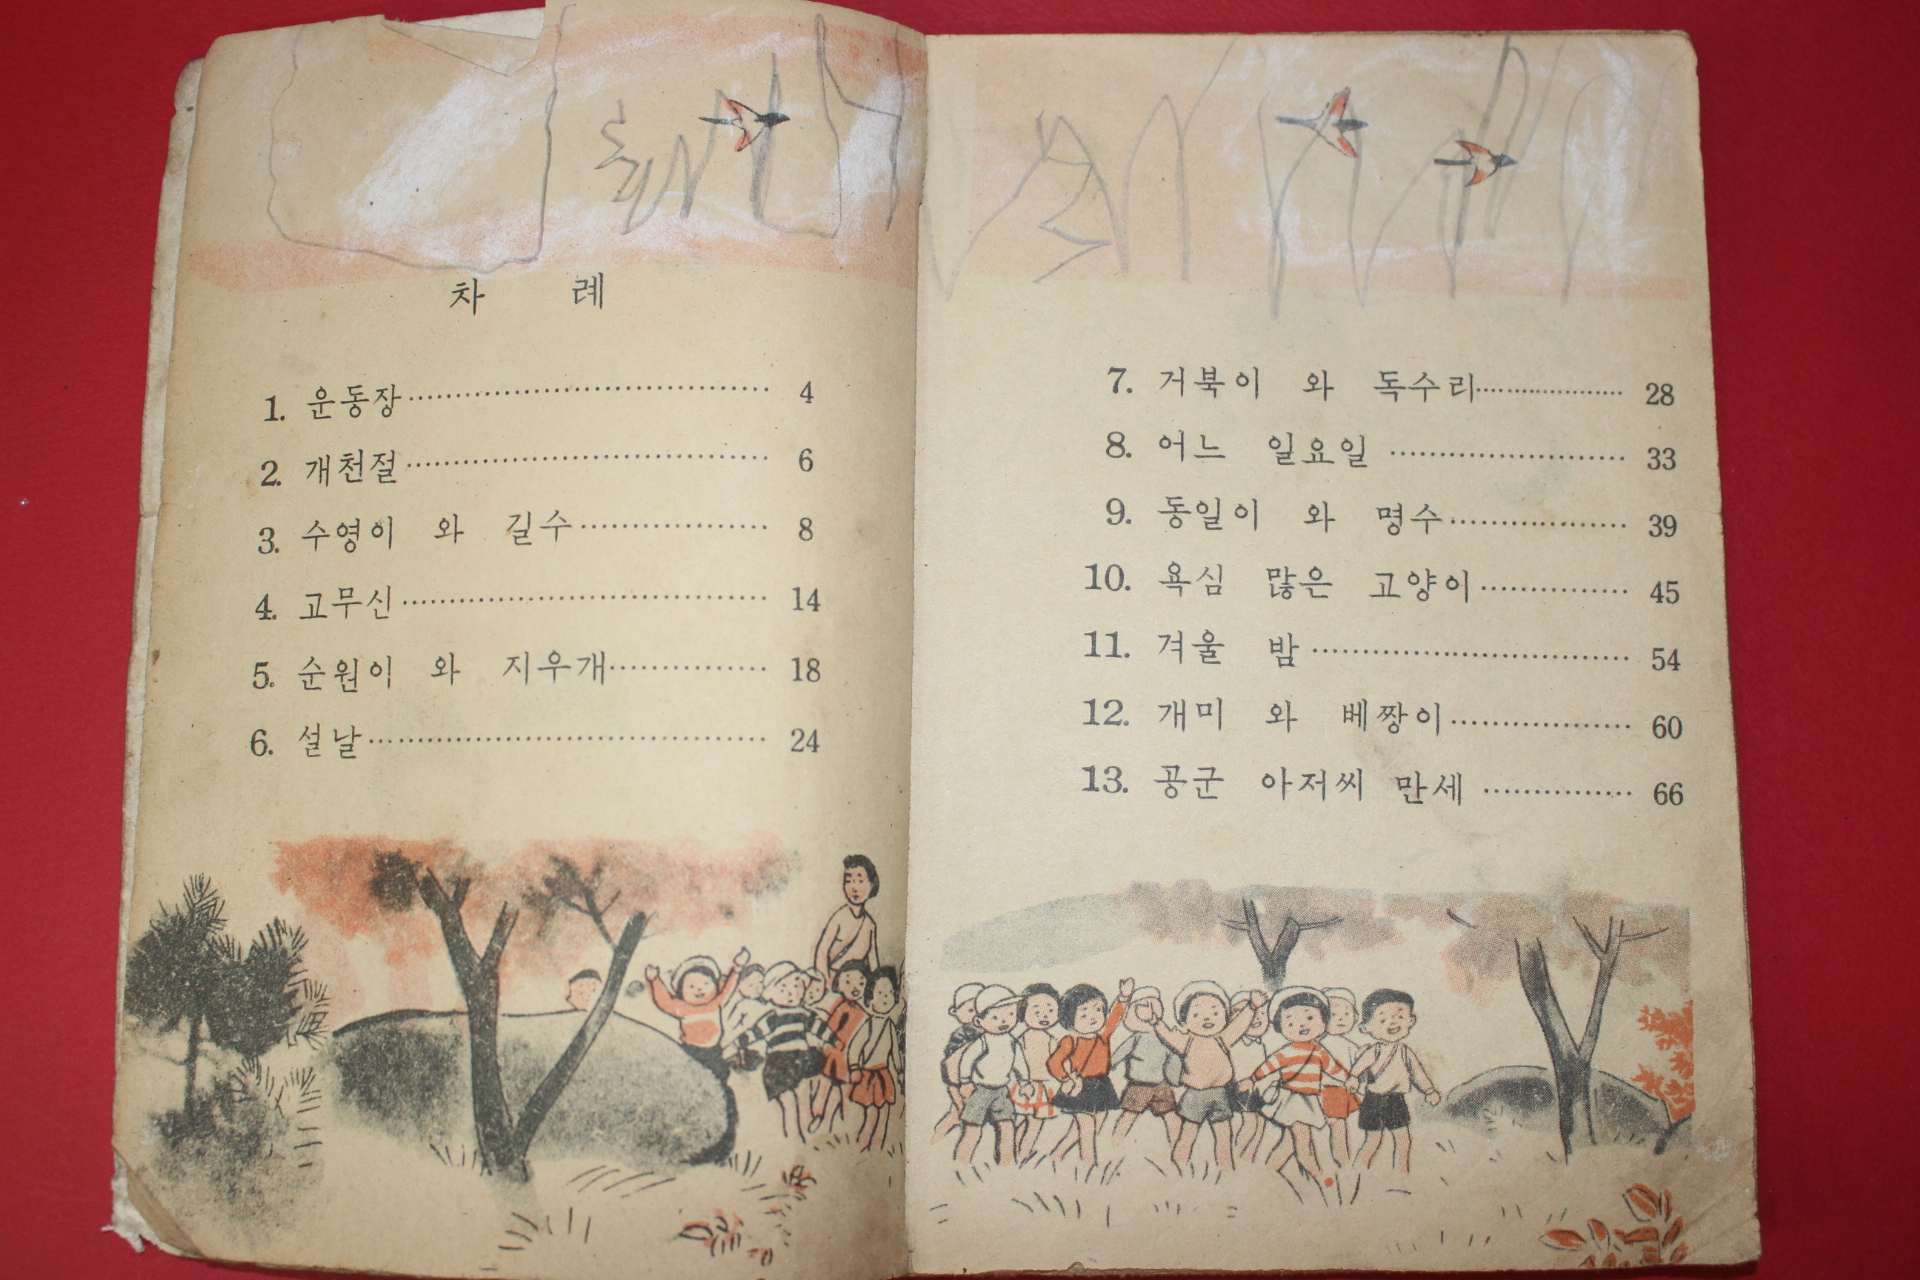 차 례
1. 운동장 4
2. 개천절 6
3. 수영이 와 길수 8
4. 고무신 14
5. 순원이 와 지우개 18
6. 설날 24
7. 거북이 와 독수리 28
8. 어느 일요일 33
9. 동일이 와 명수 39
10. 욕심 많은 고양이 45
11. 겨울 밤 54
12. 개미 와 베짱이 60
13. 공군 아저씨 만세 66